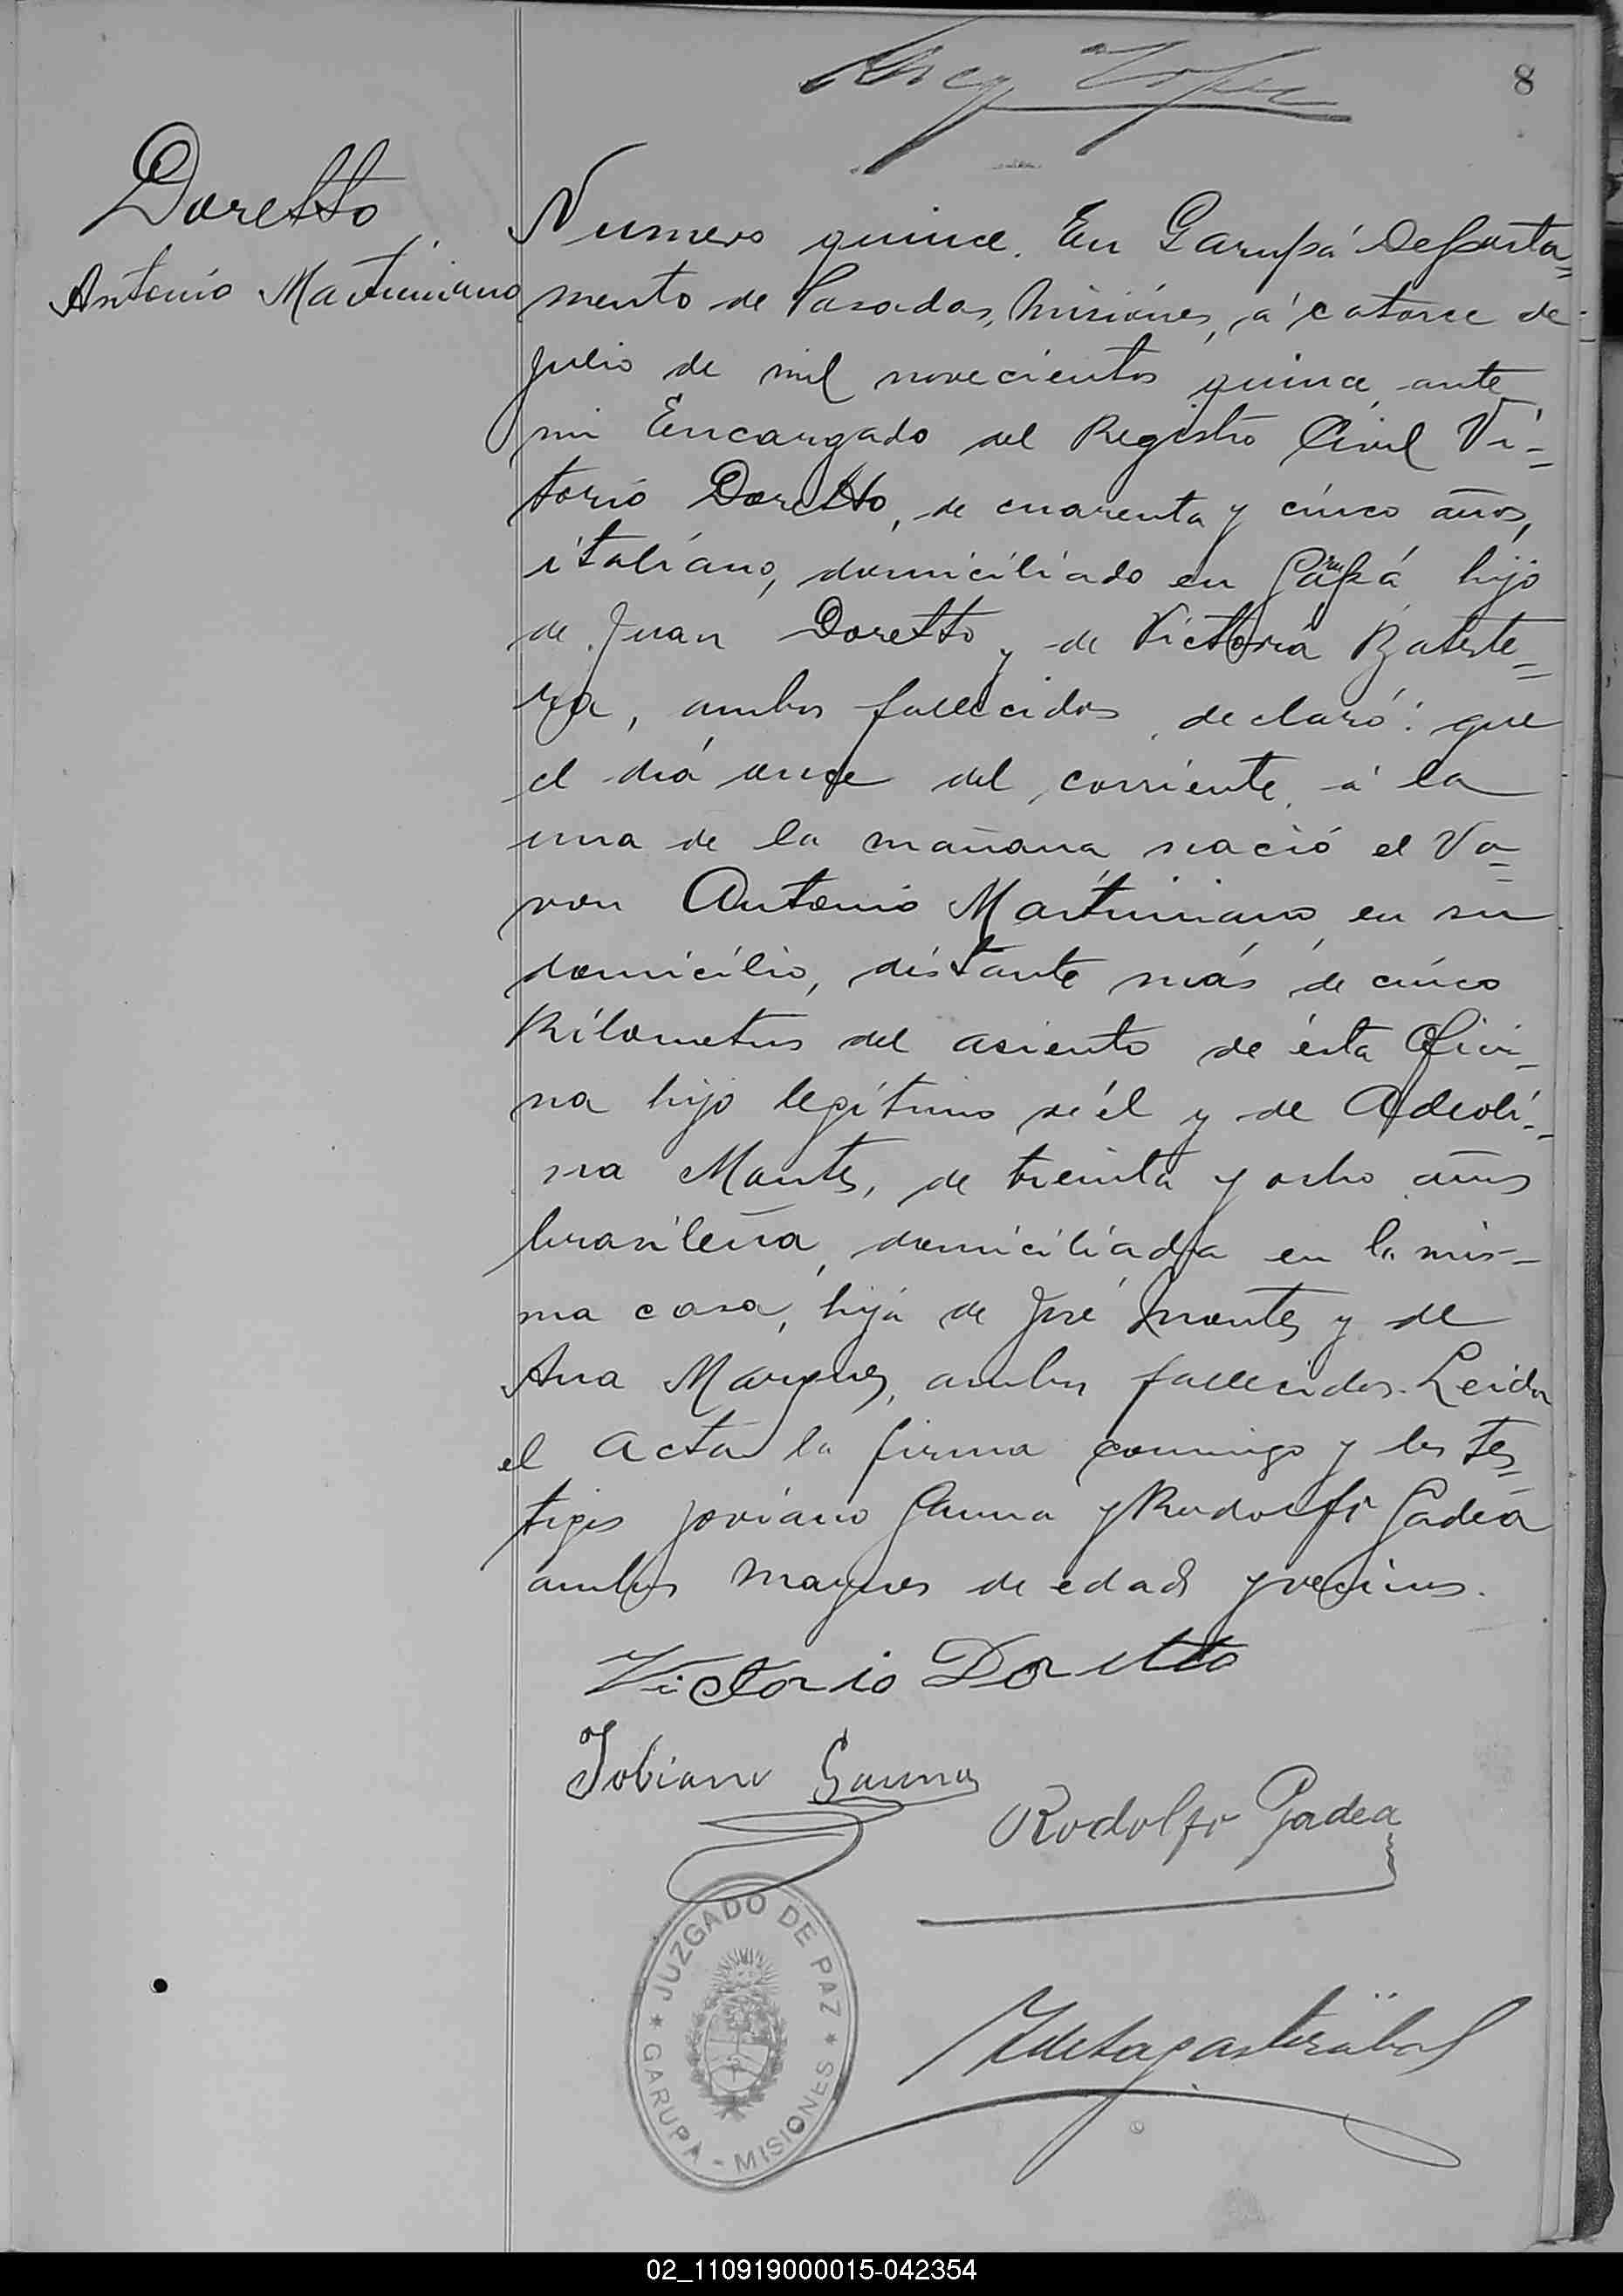 8
Doretto
Antonio Martiniano
Numero quince. En Garupá Departa=
mento de Posadas, Misiónes, á catorce de
Julio de mil novecientos quince, ante
mi Encargado del Registro Civil Vi=
torio Doretto, de cuarenta y cinco años,
italiano, domiciliado en Garupá hijo
de Juan Doretto y de Victoria Bateste=
za, ambos fallecidos, declaró: que
el diá once del corriente, á la
una de la mañana nació el Va=
ron Antonio Martiniano en su
domicilio, distante más de cinco
Kilometros del asiento de ésta Ofici=
na hijo legítimo de él y de Adeoli=
na Montes, de treinta y ocho años
brasileña, domiciliada en la mis-
ma casa, hija de José Montes y de
Ana Marques, ambos fallecidos. Leida
el Acta la firma conmigo y los tes=
tigos Joviano Gauna y Rodolfo Gadea
ambos mayores de edad y vecinos.
Victorio Doretto
Jobiano Gauna
Rodolfo Gadea
JUZGADO DE PAZ
GARUPÁ - MISIONES
02_110919000015-042354